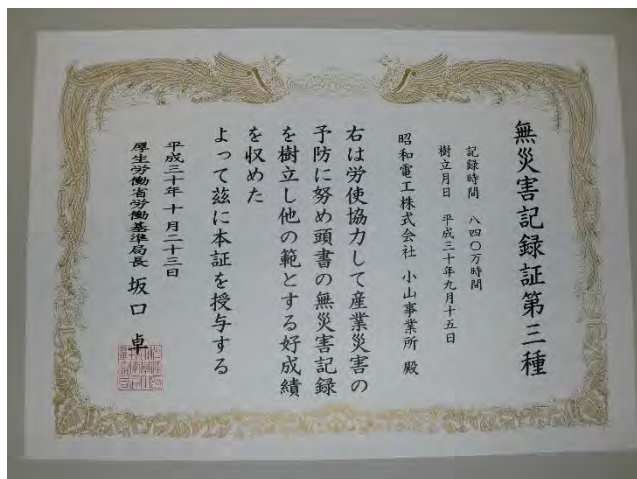 無災害記録証第三種
記録時間 八四〇万時間
樹立月日 平成三十年九月十五日
昭和電工株式会社 小山事業所 殿
右は労使協力して産業災害の
予防に努め頭書の無災害記録
を樹立し他の範とする好成績
を収めた
よって茲に本証を授与する
平成三十年十月二十三日
厚生労働省労働基準局長 坂口 卓